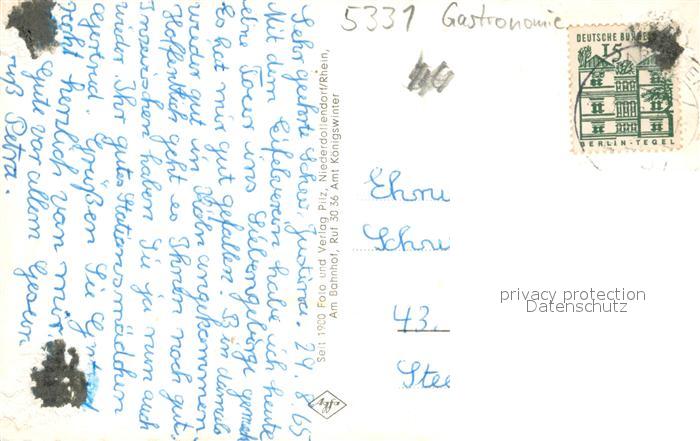 5331 Gastronomie
DEUTSCHE BUNDES
15
BERLIN-TEGEL
Sehr geehrte Schw. Justina. 24.8.65
Mit dem Eifelverein habe ich heute
eine Tour ins Siebengebirge gemacht
Es hat mir gut gefallen. Bin damals
wieder gut in Köln angekommen.
Hoffentlich geht es Ihnen noch gut.
Inzwischen haben Sie ja nun auch
wieder Ihr gutes Stationsmädchen
Gertrud. Grüßen Sie
recht herzlich von mir.
Gute vor allem Gesun
ruß Petra.
Seit 1900 Foto und Verlag Pilz, Niederdollendorf/Rhein,
Am Bahnhof, Ruf 30 36 Amt Königswinter
Ehrw
Schw
43.
Stee
privacy protection
Datenschutz